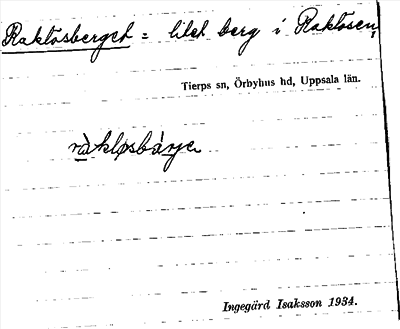 Raklösberget = litet berg i Raklösen,
Tierps sn, Örbyhus hd, Uppsala län.
ràkløsbàrje
Ingegärd Isaksson 1934.